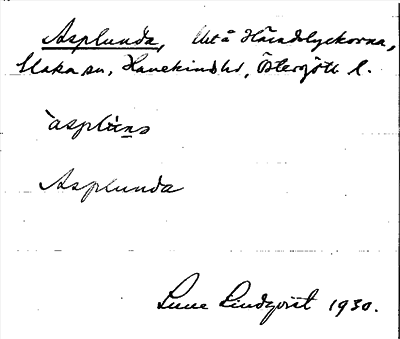 Asplunda, Utå Häradslyckorna,
Slaka sn, Hanekinds hd, Östergötl l.
àsplṳṉs
Asplunda
Sune Lindqvist 1930.